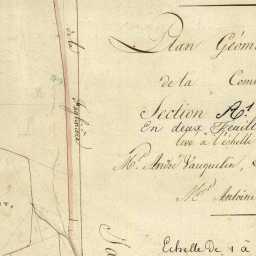 Plan Géom
de la Com
Section A.
En deux Feuill
levé à l'échelle
Mr. André Vauquelin, &
Mrs. Antoine
Echelle De 1 à
de la